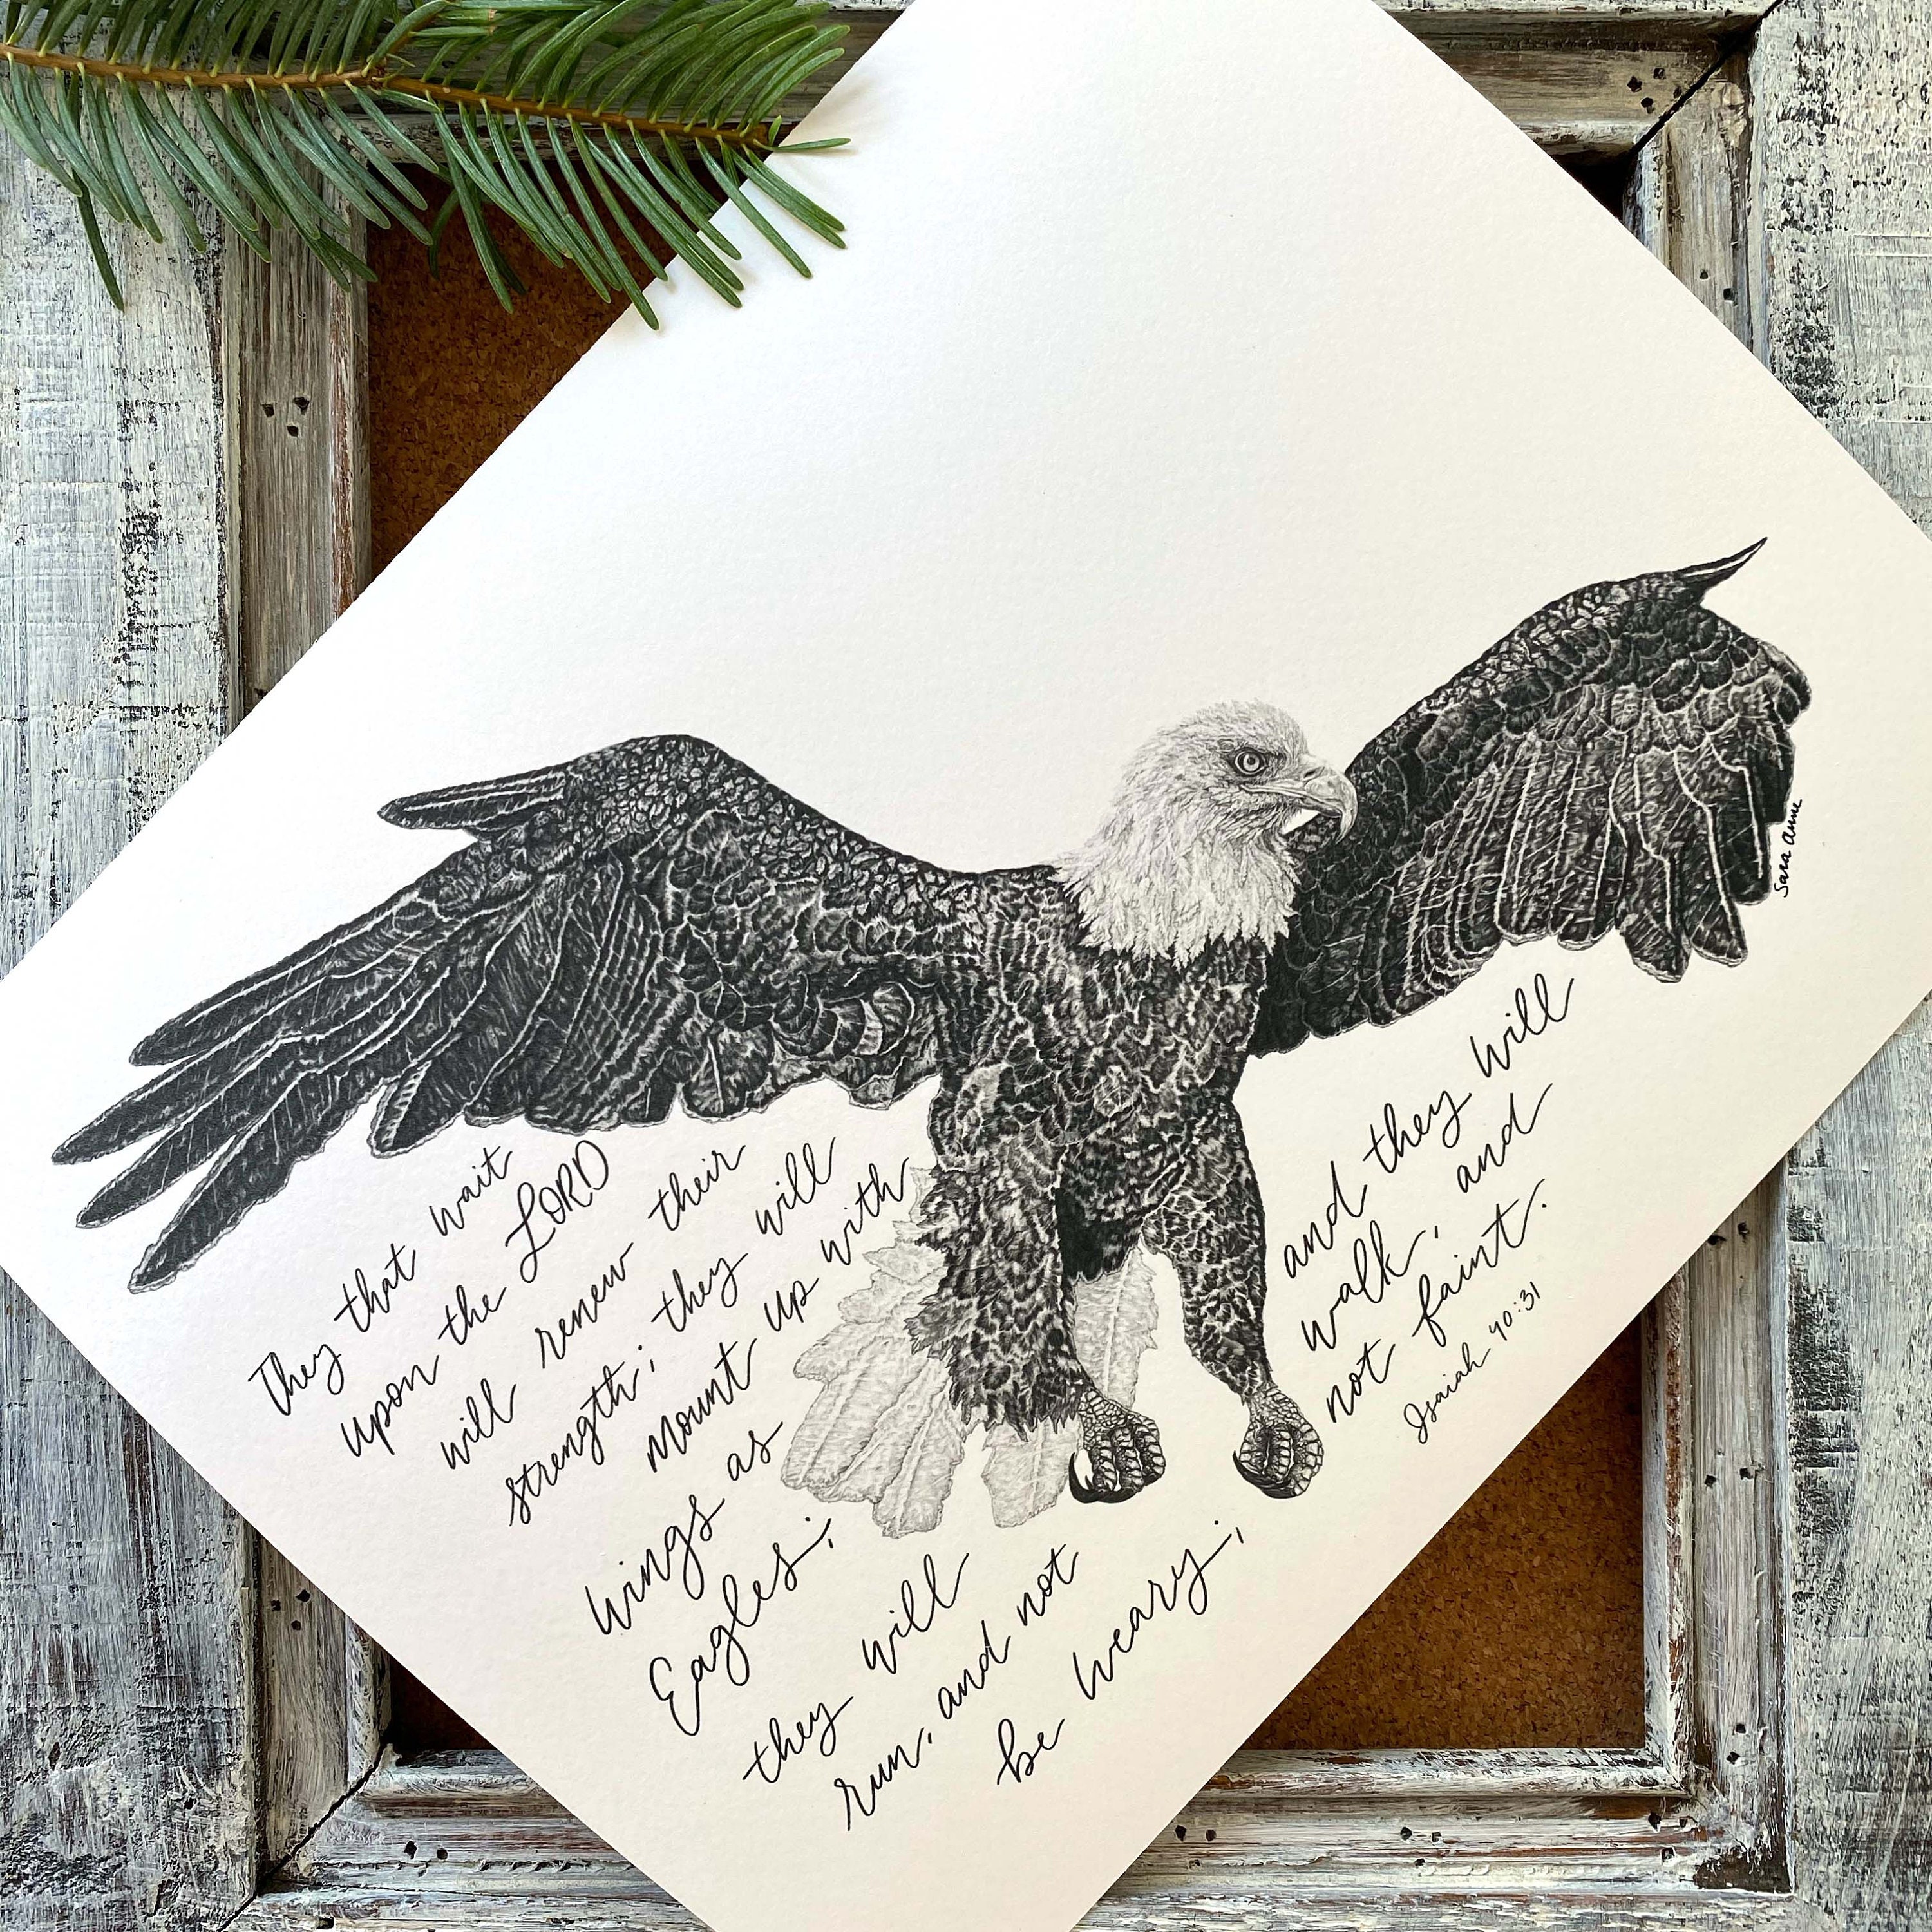 They that wait
upon the LORD
will renew their
strength; they will
mount up with
wings as
Eagles;
they will
run, and not
be weary;
and they will
walk, and
not faint.
Isaiah 40:31
Sara Anne